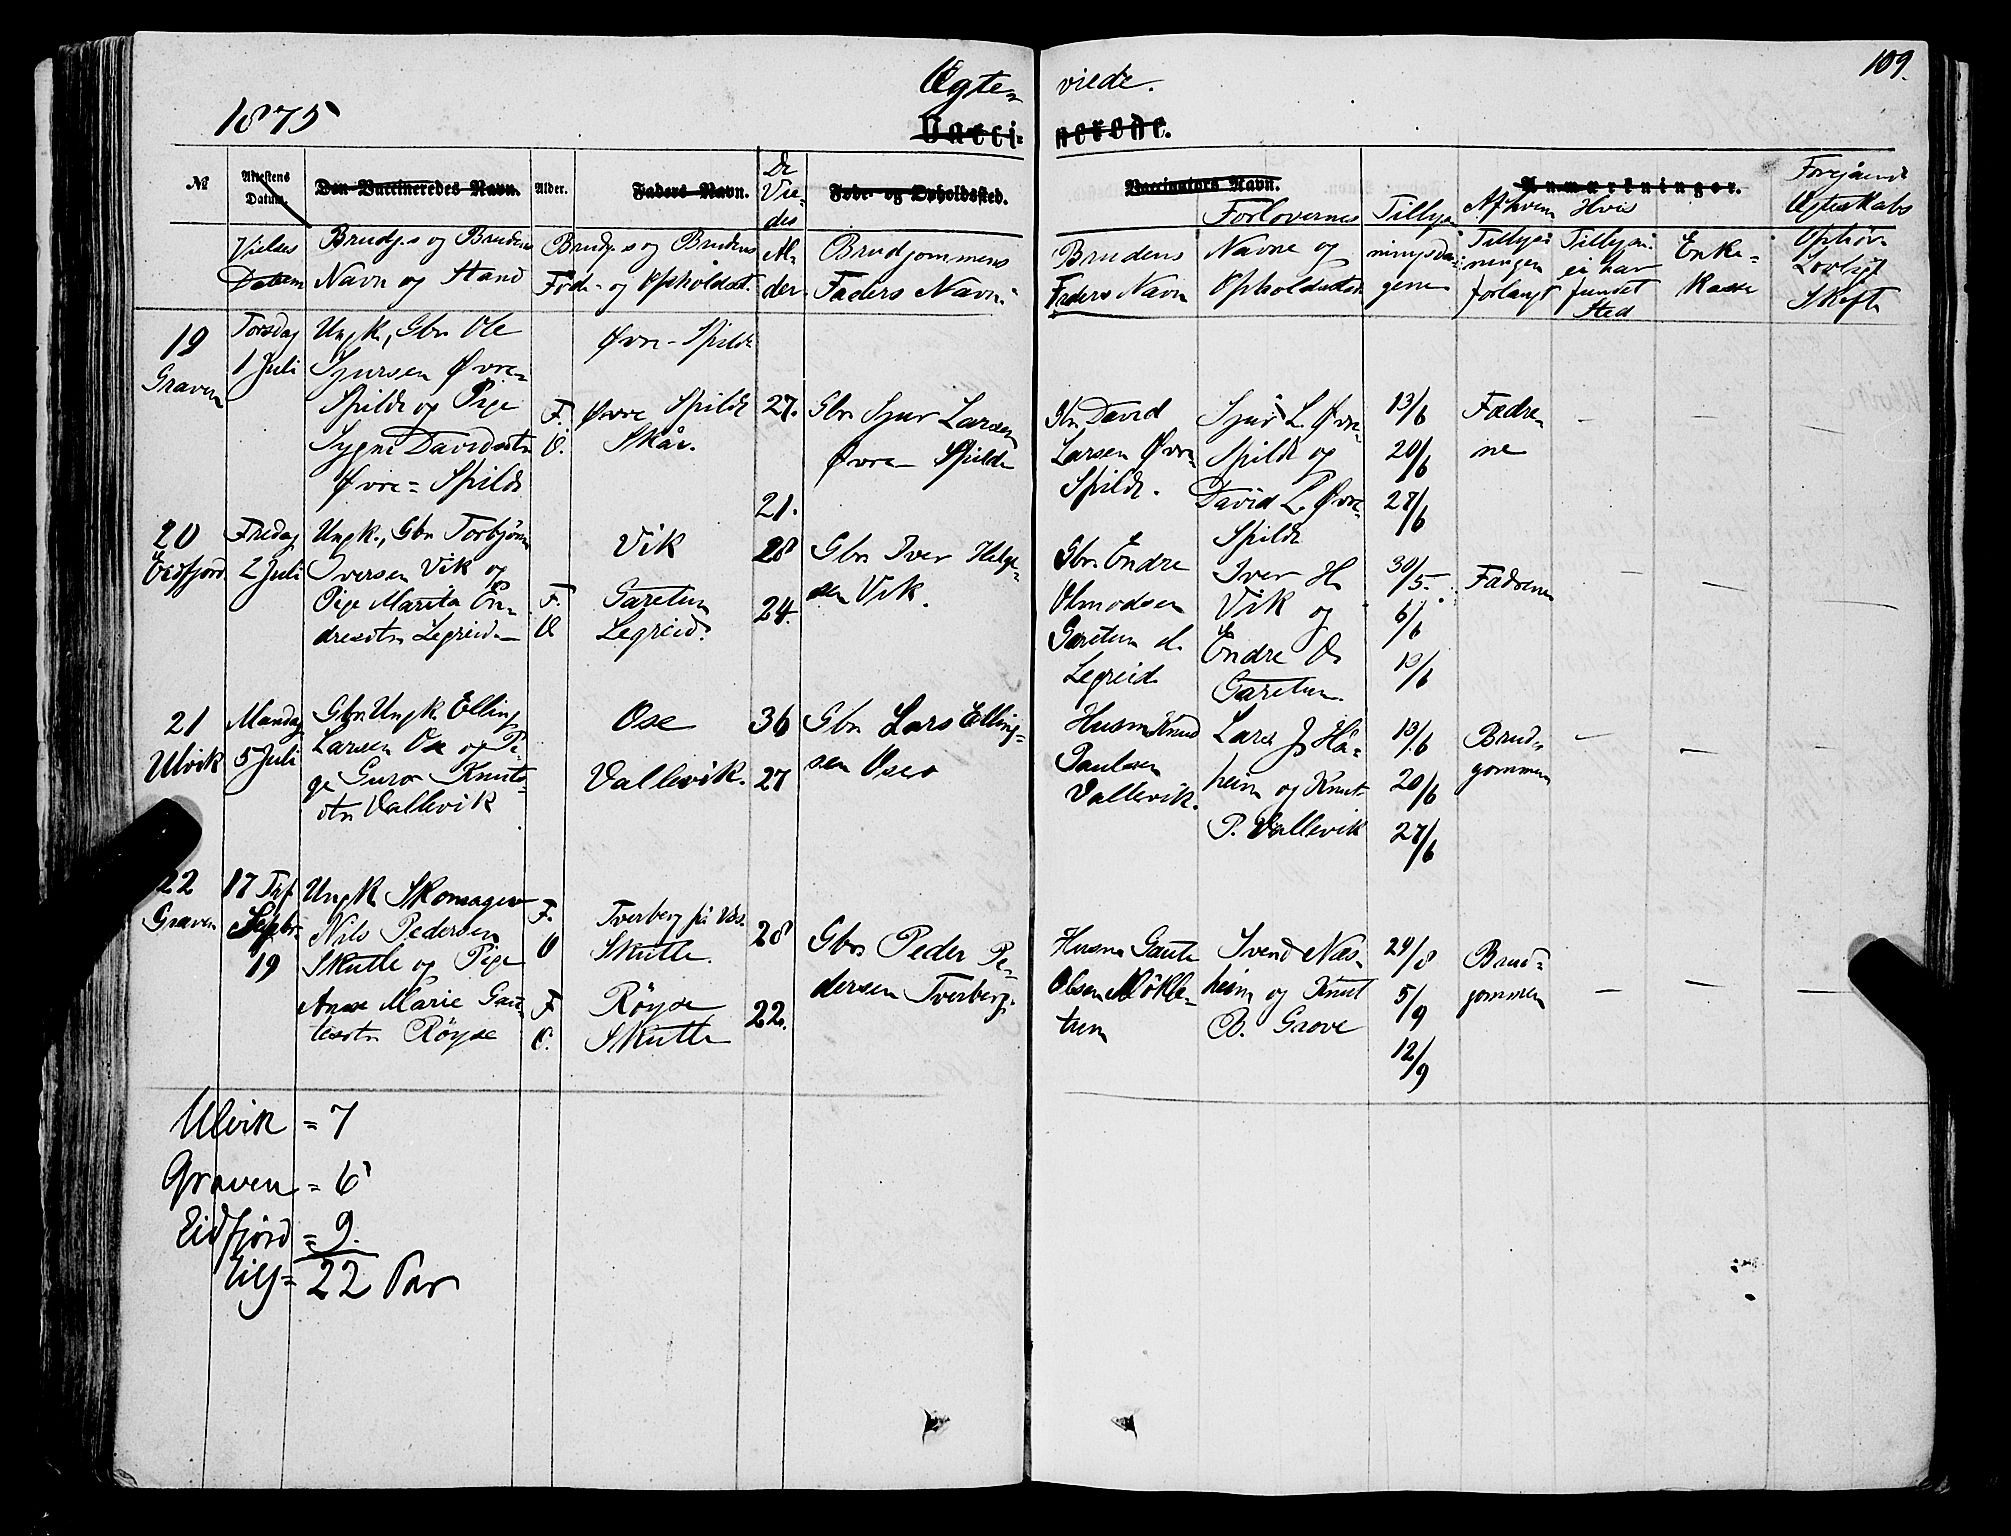 109.
Ægte- viede.
1875
Vacci- nerede.
№
Attestens Datum.
Den Vaccineredes Navn.
Alder.
Faders Navn.
De Vie- des Al- der
Føde- og Opholdssted.
Vaccinators Navn.
Anmærkninger.
Vielses Datum
Brudg.s og Brudens Navn og Stand
Brudg.s og Brudens Føde- og Opholdsst.
Brudgommens Faders Navn.
Brudens Faders Navn
Forlovernes Navne og Opholdssted
Tillys- ningsda- gene
Af hvem Tillys- ningen forlangt
Hvis Tillysn. ei har fundet Sted
Enke- kasse
Foregaaende Ægteskabs Ophör Lovligt Skifte
19
Graven
Torsdag
1 Juli
Ungk., Gbr Ole
Sjursen Øvre-
Spilde og Pige
Sygni Davidsdtr
Øvre- Spilde
F.
O.
Øvre- Spilde
Øvre Spilde
Skår.
27.
21.
Gbr Sjur Larsen
Øvre- Spilde
Gbr David
Larsen Øvre
Spilde.
Sjur L. Øvre-
Spilde og
David L. Øvre-
Spilde
13/6
20/6
27/6
Fædre
ne
20
Eidfjord
Fredag
2 Juli
Ungk., Gbr Torbjörn
Iversen Vik og
Pige Marita En-
dresdtr Legreid
F.
O
Vik
Garetun
Legreid.
28
24.
Gbr Iver Helge-
sen Vik.
Gbr Endre
Olmodsen
Garetun el.
Legreid
Iver H.
Vik og
Endre O.
Garetun.
30/5
6/6
13/6
Fædrene
21
Ulvik
Mandag
5 Juli
Gbr Ungk. Elling
Larsen Ose og Pi-
ge Guro Knuts-
dtr Vallevik
Ose
Vallevik.
36
27
Gbr Lars Elling-
sen Ose
Husm Knud
Paulsen
Vallevik.
Lars J. Hå-
heim og Knut
P. Vallevik
13/6
20/6
27/6
Brud-
gommen
22
Graven
17 Trf
Septbr.
19
Ungk Skomager
Nils Pedersen
Skutle og Pige
Anna Marie Gau-
tesdtr Röyse
F.
O
F
O.
Tverberg på Vos.
Skutle.
Röyse
Skutle
28
22.
Gbr Peder Pe-
dersen Tverberg.
Husm Gaute
Olsen Mökle-
tun
Svend Næs-
heim og Knut
B. Grove
29/8
5/9
12/9
Brud-
gommen
Ulvik = 7
Graven = 6
Eidfjord = 9.
Tils = 22 Par